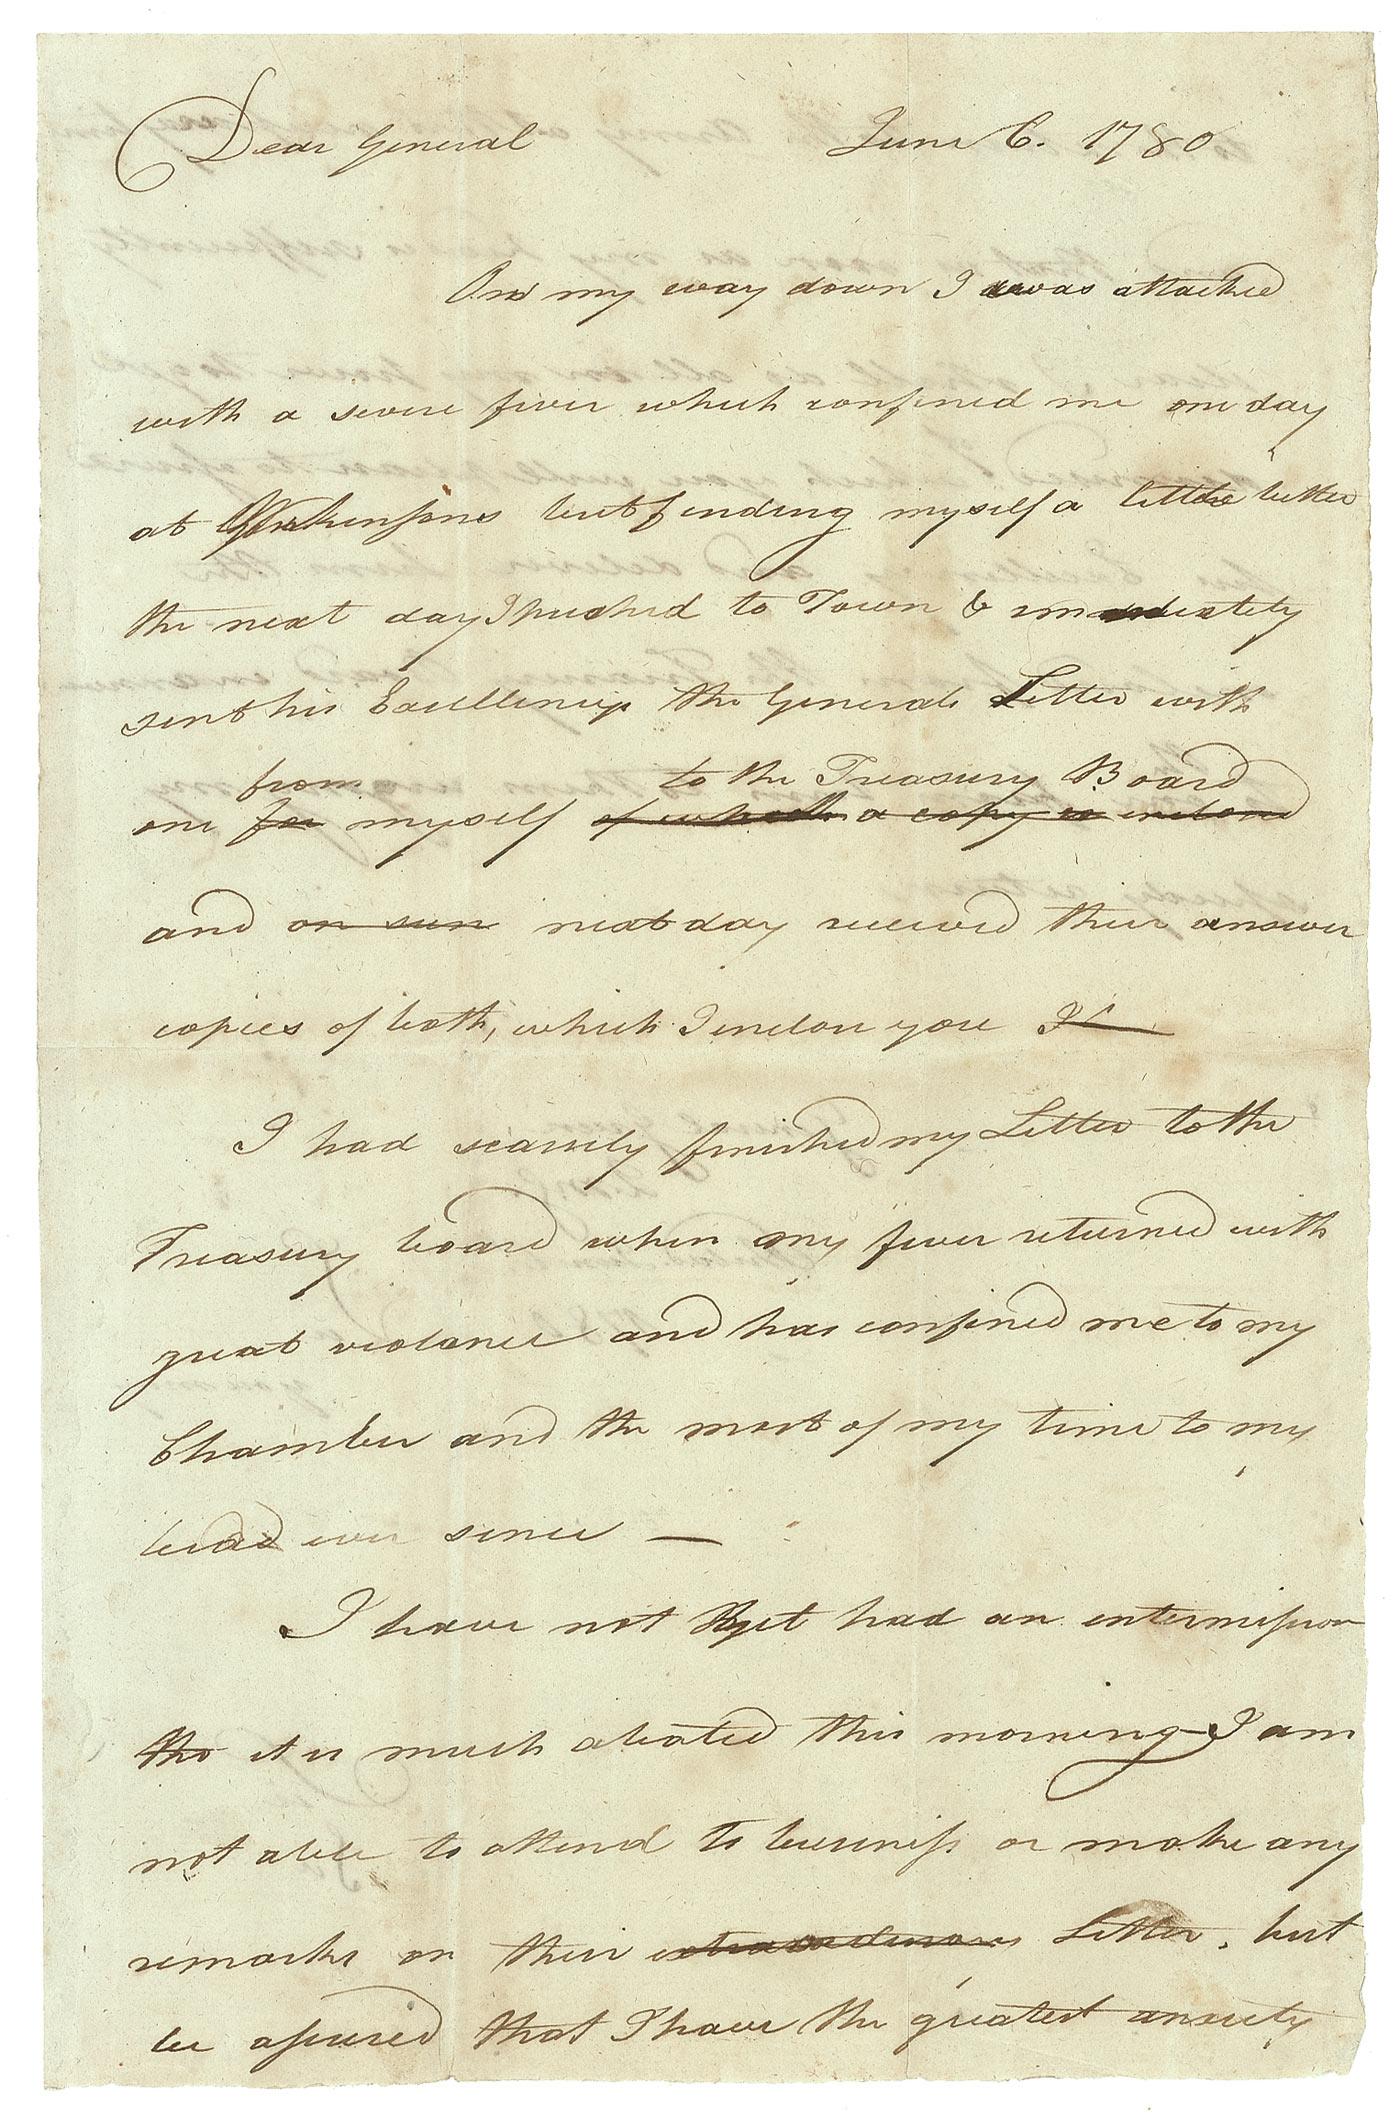 Dear General June 6. 1780
On my way down I was attacked
with a severe fever which confined me one day
at but finding myself a little better
the next day I pushed to Town & immediately
sent his Excellency the Generals Letter with
from to the Treasury Board
one for myself of which a copy is inclosed
and on sun next day received their answer
copies of both, which I inclose you I
I had scarcely finished my Letter to the
Treasury board when my fever returned with
great violence and has confined me to my
Chamber and the most of my time to my
bed ever since —
I have not yet had an intermission
tho it is much abated this morning— I am
not able to attend to business or make any
remarks on their extraordinary Letter, but
be assured that I have the greatest anxiety